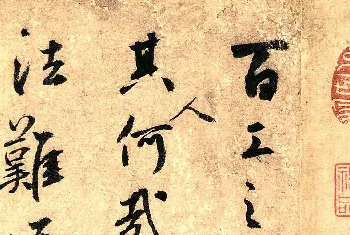 百工之
其人何哉
法難